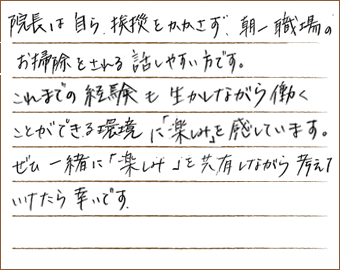 院長は自ら、挨拶をかかさず、朝一職場の
お掃除をされる話しやすい方です。
これまでの経験も生かしながら働く
ことができる環境に「楽しみ」を感じています。
ぜひ一緒に「楽しみ」を共有しながら考えて
いけたら幸いです.